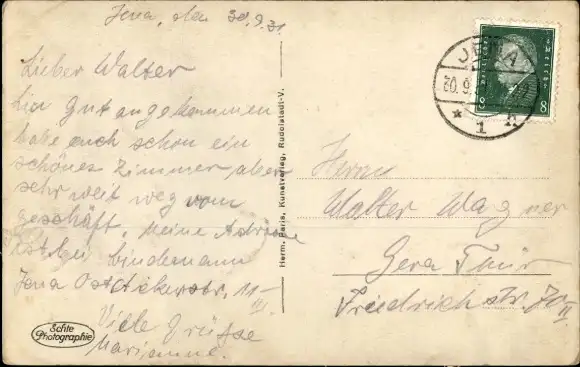 Jena, den 30.9.31.
Lieber Walter
Bin Gut angekommen
habe auch schon ein
schönes Zimmer aber
sehr weit weg vom
geschäft. Meine Adresse
ist bei Lindemann
Jena Ostickerstr. 11 III.
Viele Grüsse
Marianne.
Echte
Photographie
Herm. Paris, Kunstverlag, Rudolstadt-V.
8 8
JENA
30.9.
* 1 n
Herrn
Walter Wagner
Gera Thür
Friedrichstr. 70 II